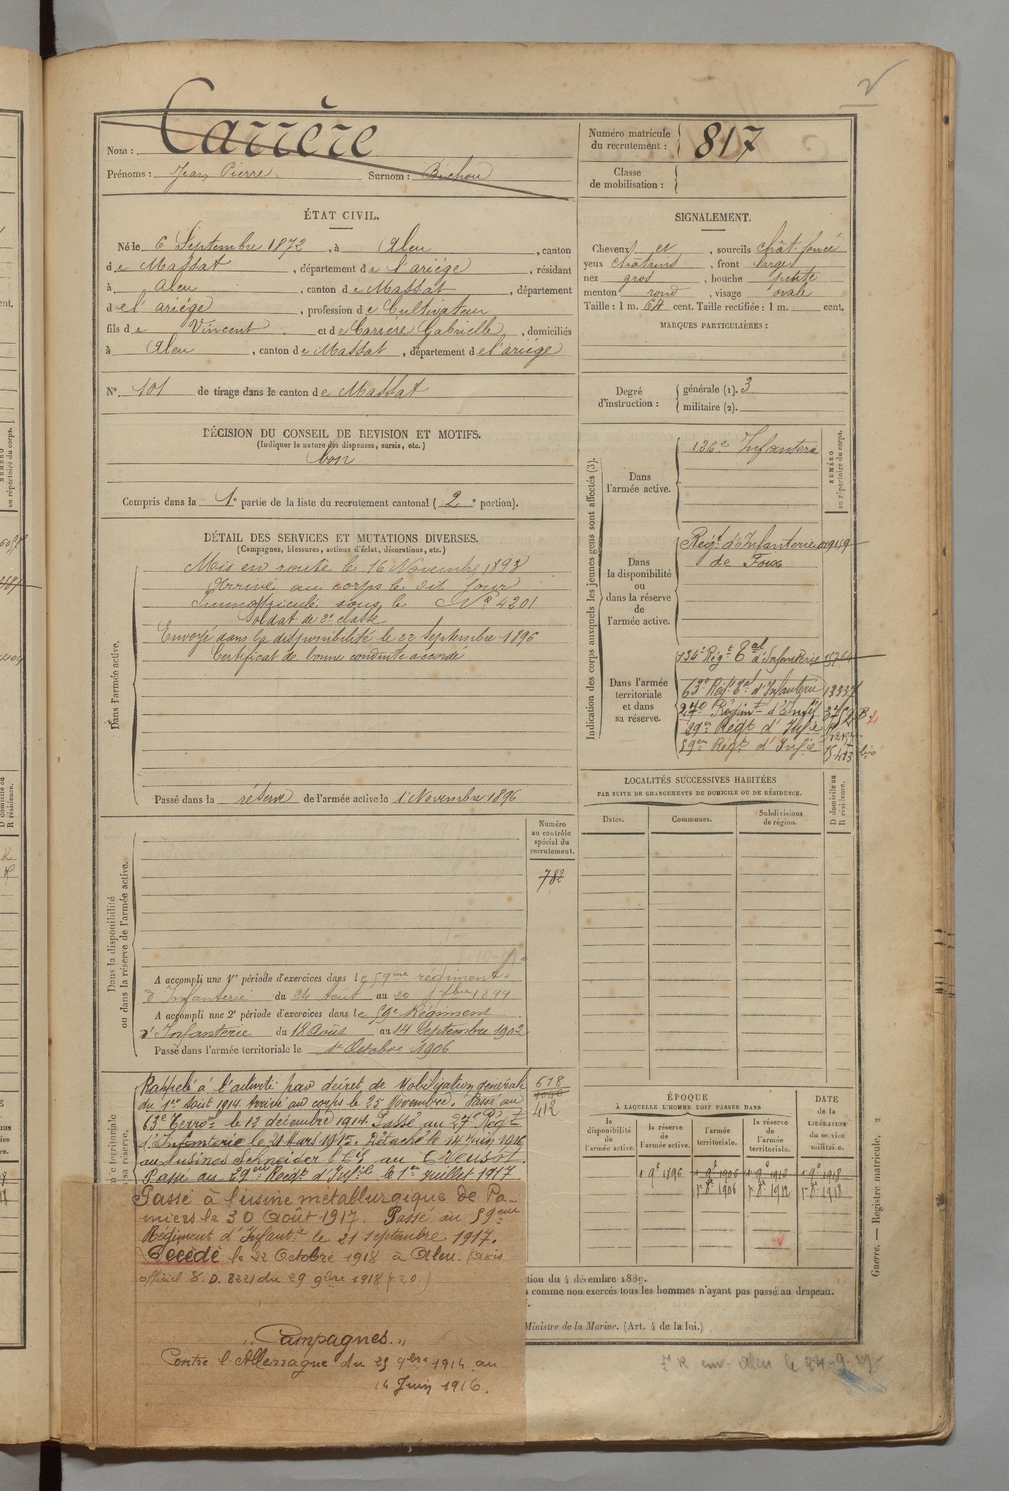 Nom : Carrère
Prénoms : Jean Pierre Surnom : Bichou
Numéro matricule du recrutement : 817
Classe de mobilisation :
ÉTAT CIVIL.
Né le 6 Septembre 1872, à Aleu, canton
de Massat, département de l'ariége, résidant
à Aleu, canton de Massat, département
de l'ariége, profession de Cultivateur
fils de Vincent et de Carrère Gabrielle, domiciliés
à Aleu, canton de Massat, département de l'ariége
N° 101 de tirage dans le canton de Massat
DÉCISION DU CONSEIL DE REVISION ET MOTIFS.
(Indiquer la nature des dispenses, sursis, etc.)
bon
Compris dans la 1e partie de la liste du recrutement cantonal (2e portion).
SIGNALEMENT.
Cheveux et, sourcils chât-foncé
yeux châtains, front large
nez gros, bouche petite
menton rond, visage ovale
Taille : 1 m. 64 cent. Taille rectifiée : 1 m. cent.
MARQUES PARTICULIÈRES :
Degré d'instruction : générale (1). 3
militaire (2).
DÉTAIL DES SERVICES ET MUTATIONS DIVERSES.
(Campagnes, blessures, actions d'éclat, décorations, etc.)
Dans l'armée active.
Mis en route le 16 Novembre 1893
Arrivé au corps le dit jour
Immatriculé sous le N° 4201
Soldat de 2e classe
Envoyé dans la disponibilité le 22 Septembre 1896
Certificat de bonne conduite accordé
Passé dans la réserve de l'armée active le 1er Novembre 1896
Indication des corps auxquels les jeunes gens sont affectés (3).
NUMÉRO au répertoire du corps.
Dans l'armée active.
126e Infanterie
Dans la disponibilité ou dans la réserve de l'armée active.
Régt d'Infanterie
de Foix
Dans l'armée territoriale et dans sa réserve.
134e Régt Eal d'Infanterie
63e Régt Eal d'Infanterie
270 Régimt d'Infie
29me Régt d'Infie
59me Régt d'Infie
LOCALITÉS SUCCESSIVES HABITÉES
PAR SUITE DE CHANGEMENTS DE DOMICILE OU DE RÉSIDENCE.
Dates. Communes. Subdivisions de région. D domicile ou R résidence.
Numéro au contrôle spécial du recrutement.
782
Dans la disponibilité ou dans la réserve de l'armée active.
A accompli une 1re période d'exercices dans le 59me régiment
d'Infanterie du 24 Août au 20 7bre 1899
A accompli une 2e période d'exercices dans le 59e Régiment
d'Infanterie du 18 Août au 14 Septembre 1902
Passé dans l'armée territoriale le 1er Octobre 1906
Rappelé à l'activité par décret de Mobilisation générale
du 1er Août 1914. Arrivé au corps le 25 Novembre. Passé au
63e Terral le 12 décembre 1914. Passé au 27e Régt
d'Infanterie le 21 Mars 1915. Détaché le 14 Juin 1916
aux Usines Schneider & Cie au Creusot.
Passé au 29me Régt d'Infie le 1er Juillet 1917
678
412
Passé à l'usine métallurgique de Pa-
miers le 30 Août 1917. Passé au 59eme
Régiment d'Infantie le 21 septembre 1917.
Décédé le 22 Octobre 1918 à Aleu. (Avis
officiel E. D. 8221 du 29 9bre 1918
"Campagnes"
Contre l'Allemagne du 25 9bre 1914 au
14 Juin 1916.
ÉPOQUE
À LAQUELLE L'HOMME DOIT PASSER DANS
la disponibilité de l'armée active.
la réserve de l'armée active.
l'armée territoriale.
la réserve de l'armée territoriale.
DATE de la LIBÉRATION du service militaire.
1 9e 1896 1 9e 1906 1 9e 1912 1 9e 1918
1r 8e 1906 1r 8e 1912 1r 8e 1918
tion du 4 décembre 1889.
comme non exercés tous les hommes n'ayant pas passé au drapeau.
Ministre de la Marine. (Art. 4 de la loi.)
Guerre. — Registre matricule. 2